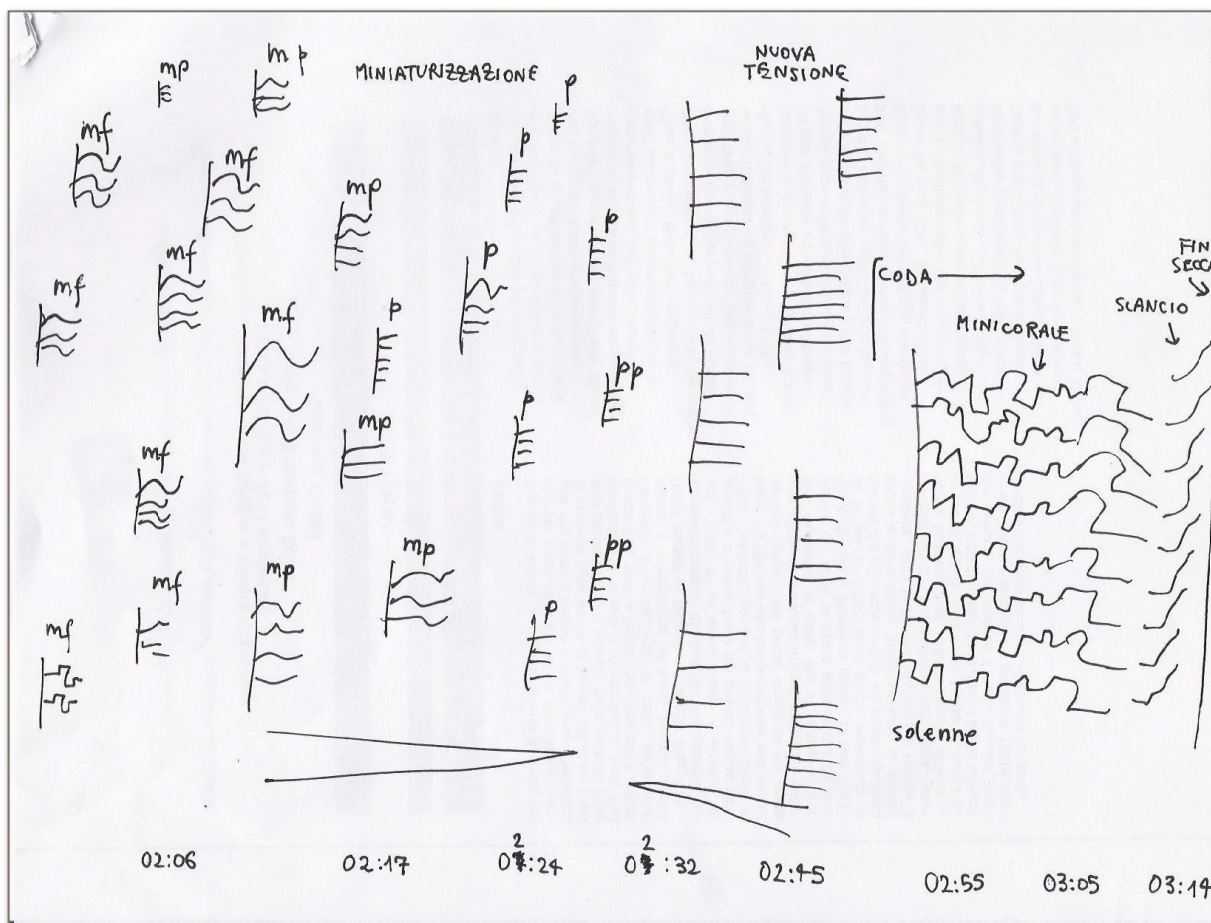 mp
m p
MINIATURIZZAZIONE
NUOVA
TENSIONE
p
mf
mf
p
mp
mf
mf
p
p
mf
p
CODA
FIN
SECCA
SLANCIO
MINICORALE
mf
mp
p
pp
mf
mp
pp
mf
mp
p
mf
solenne
02:06
02:17
02:24
02:32
02:45
02:55
03:05
03:14